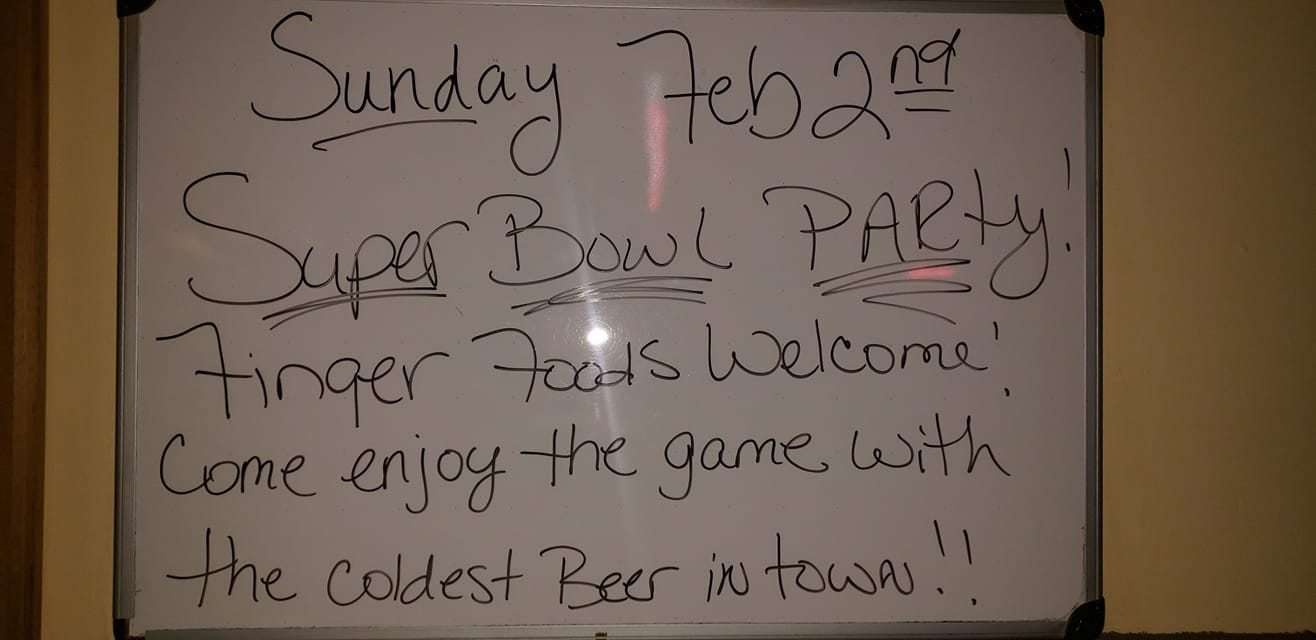 Sunday Feb 2nd
Super Bowl PARty!
Finger Foods Welcome!
Come enjoy the game with
the coldest Beer in town!!